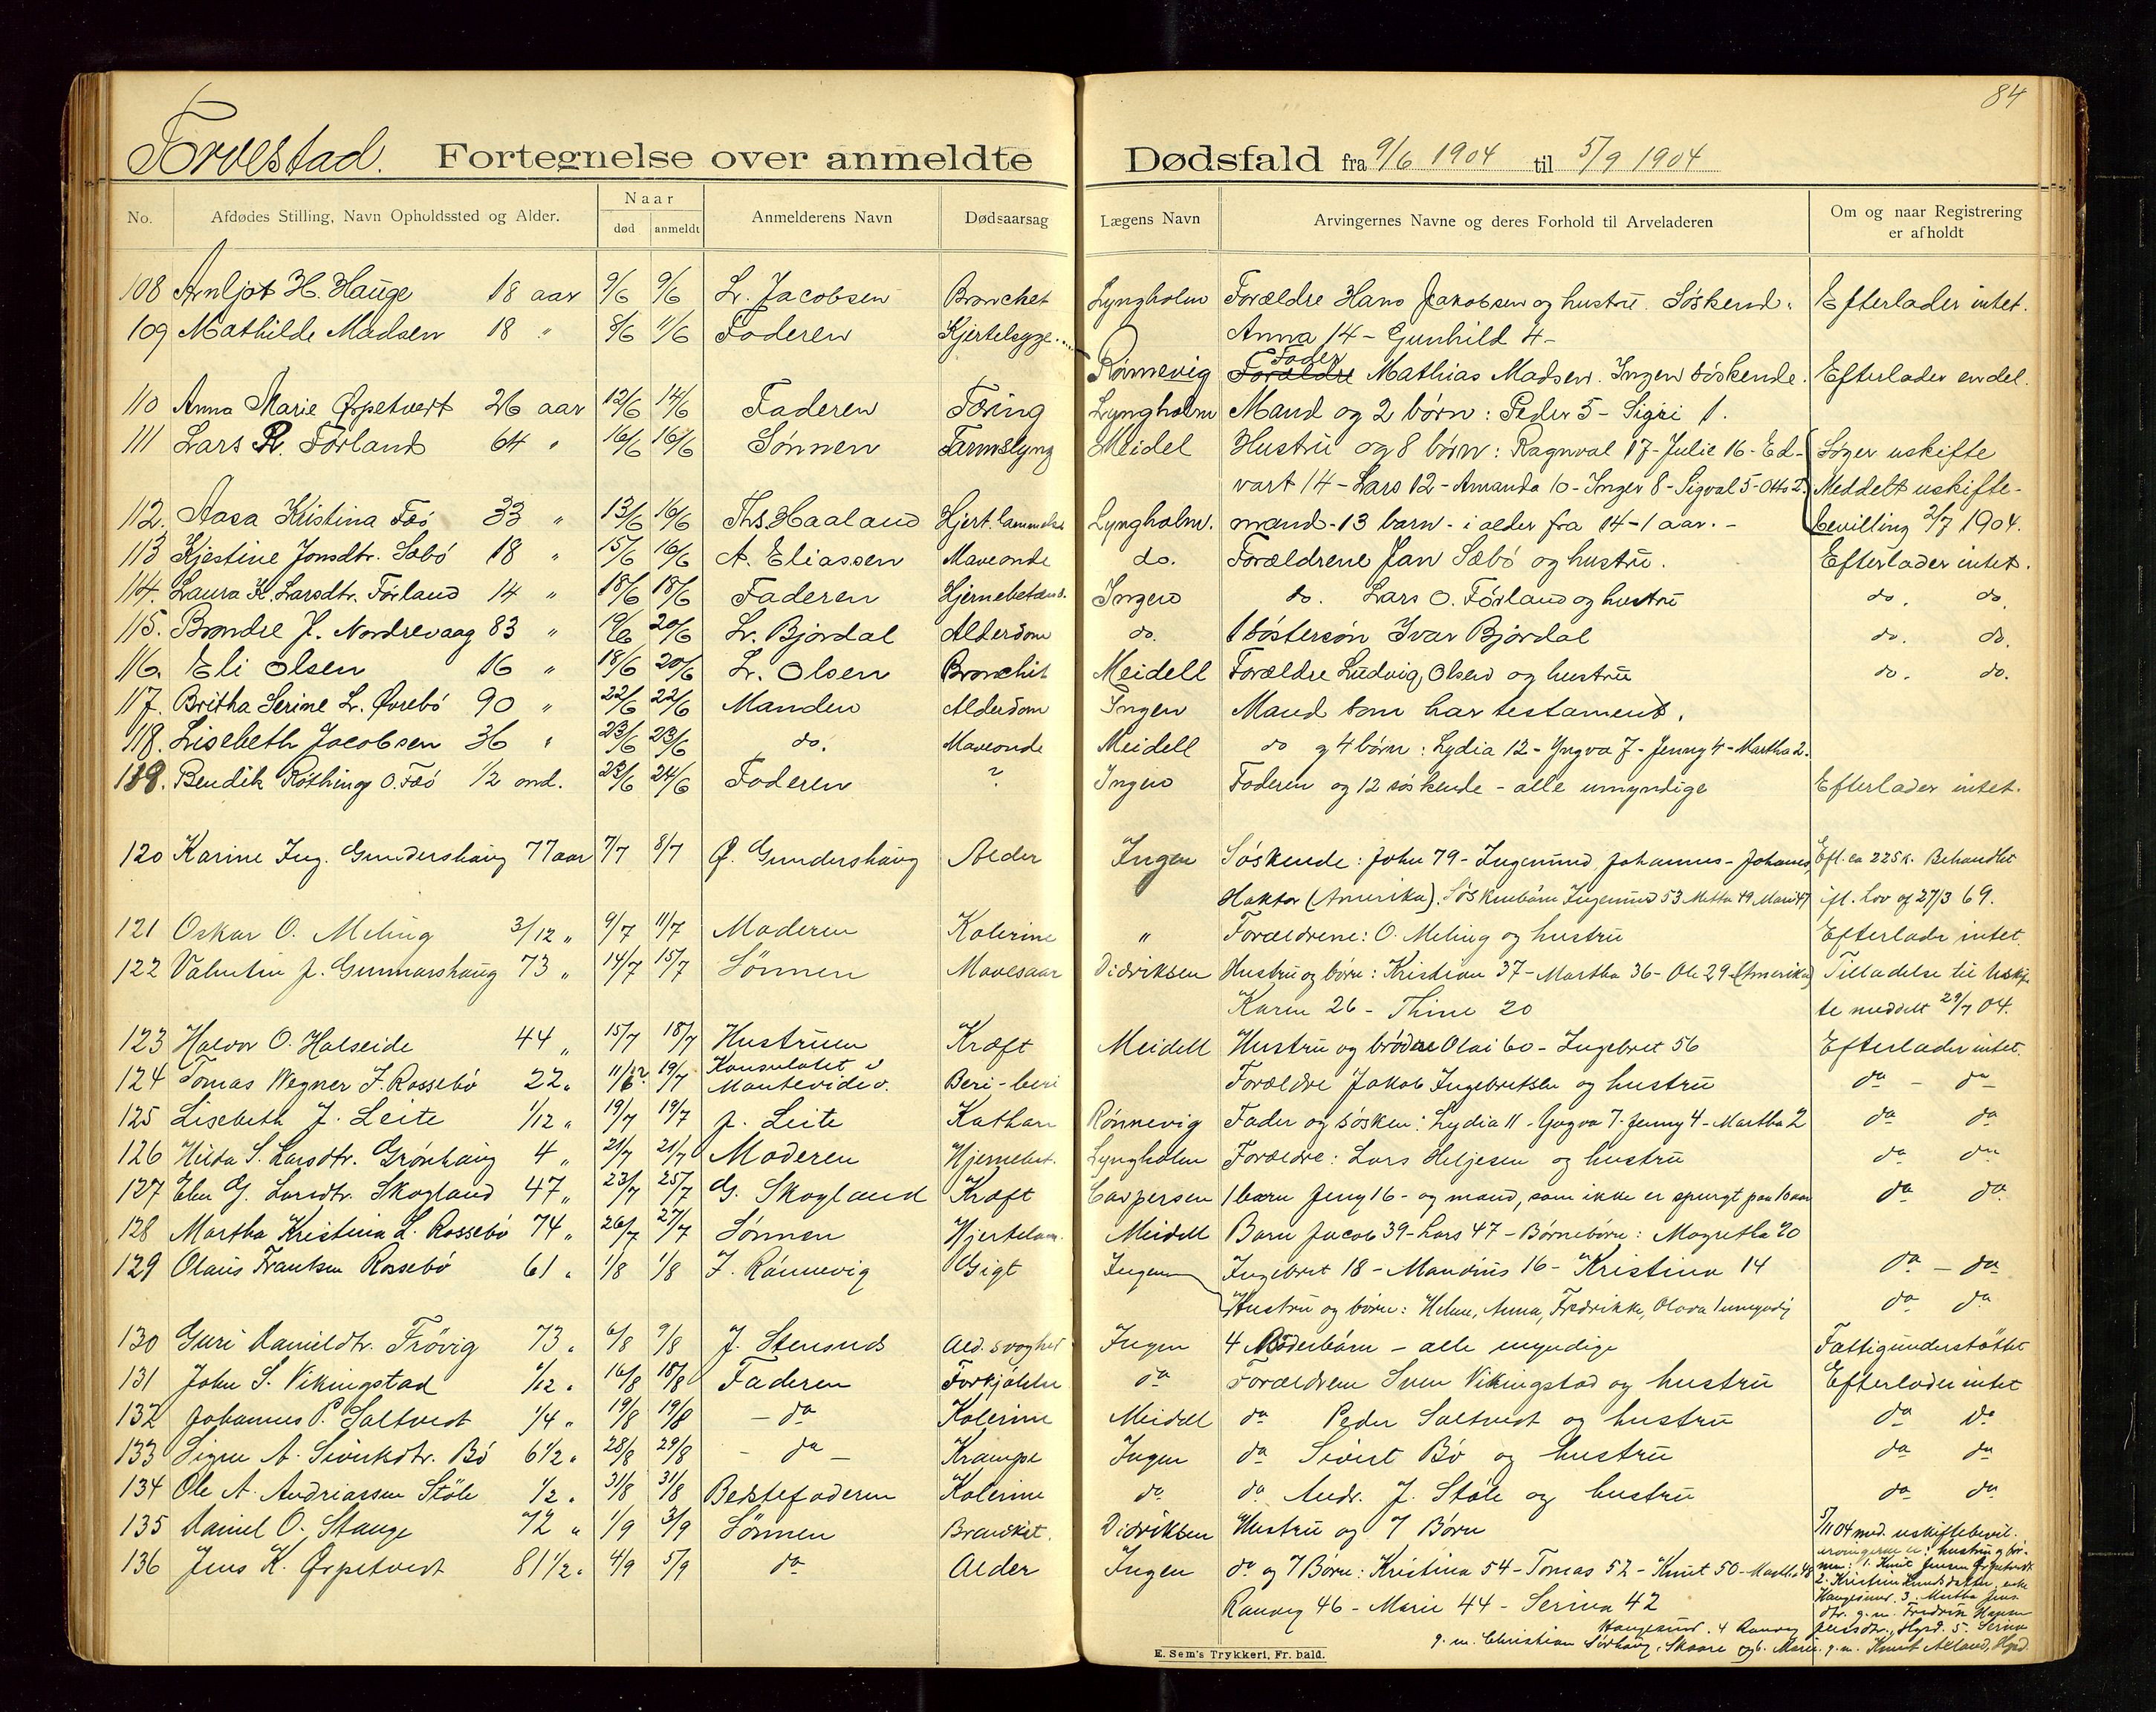 84
Torvestad. Fortegnelse over anmeldte Dødsfald fra 9/6 1904 til 5/9 1904
No. Afdødes Stilling, Navn Opholdssted og Alder. Naar død anmeldt Anmelderens Navn Dødsaarsag Lægens Navn Arvingernes Navne og deres Forhold til Arveladeren Om og naar Registrering er afholdt
108 Arnljot H. Hauge 18 aar 9/6 9/6 L. Jacobsen Bronchet Lyngholm Forældre Hans Jakobsen og hustru. Søskend: Efterlader intet.
109 Mathilde Madsen 18 " 8/6 11/6 Faderen Kjertelsyge Anna 14 - Gunhild 4 -
Rønnevig Forældre Fader Mathias Madsen. Ingen søskende. Efterlader en del.
110 Anna Marie Ørpetvedt 26 aar 12/6 14/6 Faderen Tæring Lyngholm Mand og 2 børn: Peder 5 - Sigri 1.
111 Lars R. Førland 64 " 16/6 16/6 Sønnen Tarmslyng Meidel Hustru og 8 børn: Ragnval 17 - Julie 16 - Ed- Søger uskifte
vart 14 - Lars 12 - Amanda 10 - Inger 8 - Sigval 5 - Otto 2. Meddelt uskifte-
112. Aasa Kristina Fæø 33 " 13/6 16/6 Ths. Haaland Hjert. lammelse Lyngholm. mand - 13 barn - i alder fra 14 - 1 aar. - bevilling 2/7 1904.
113 Kjestine Jonsdtr. Sæbø 18 " 15/6 16/6 A. Eliassen Maveonde do. Forældrene Jan Sæbø og hustru. Efterlader intet.
114. Laura K. Larsdtr. Førland 14 " 18/6 18/6 Faderen Hjernebetænd. Ingen do. Lars O. Førland og hustru do. do.
115. Brondre J. Nordrevaag 83 " 19/6 20/6 L. Bjordal Alderdom do. 1 søstersøn Ivar Bjordal do. do.
116. Eli Olsen 16 " 18/6 20/6 L. Olsen Bronchit Meidell Forældre Ludvig Olsen og hustru do. do.
117. Britha Serine L. Øvrebø 90 " 22/6 22/6 Manden Alderdom Ingen Mand som har testament.
118. Lisebeth Jacobsen 36 " 23/6 23/6 do. Maveonde Meidell do og 4 børn: Lydia 12 - Yngva 7 - Jenny 4 - Martha 2.
119. Bendik Røthing O. Fæø 1/2 md. 23/6 24/6 Faderen ? Ingen Faderen og 12 søskende - alle umyndige Efterlader intet.
120 Karine Ing. Gundershaug 77 aar 7/7 8/7 Ø. Gundershaug Alder Ingen Søskende: John 79 - Ingemund, Johannes - Johannes, Efl. ca 225 k. Behandlet
Haktor (Amerika). Søskenbørn Ingemund 53 Mette 49 Mari 47 ifl. Lov af 27/3 69.
121 Oskar O. Meling 3/12 " 9/7 11/7 Moderen Kolerine " Forældrene: O. Meling og hustru Efterlader intet.
122 Valentin J. Gunnarshaug 73 " 14/7 15/7 Sønnen Mavesaar Didriksen Hustru og børn: Kristian 37 - Martha 36 - Ole 29 - (Amerika) Tilladelse til Uskif-
Karen 26 - Thine 20 te meddelt 29/7 04.
123 Halvor O. Halseide 44 " 15/7 18/7 Hustruen Kræft Meidell Hustru og brødre Olai 60 - Ingebret 56 Efterlader intet.
124 Tomas Wegner J. Rossebø 22 " 11/6 ? 19/7 Konsulatet i Montevideo. Beri-beri Forældre Jakob Ingebretsen og hustru do - do
125 Lisebeth J. Leite 1/12 " 19/7 19/7 J. Leite Kathar Rønnevig Fader og søsken: Lydia 11 - Yngva 7 - Jenny 4 - Martha 2 do do
126 Hilda S. Larsdtr. Grønhaug 4 " 21/7 21/7 Moderen Hjernebet. Lyngholm Forældre: Lars Heljesen og hustru do do
127 Elen G. Larsdtr. Skogland 47 " 23/7 25/7 G. Skogland Kræft Caspersen 1 barn Jeny 16 - og mand, som ikke er spurgt paa 10 aar do do
128 Martha Kristina L. Rossebø 74 " 26/7 27/7 Sønnen Hjertelam. Meidell Barn Jacob 39 - Lars 47 - Børnebørn: Magretha 20
129 Olaus Frantsen Rossebø 61 " 1/8 1/8 J. Rønnevig Gigt Ingen Ingebret 18 - Mandius 16 - Kristina 14 do - do
Hustru og børn: Helene, Anna, Fredrikke, Olava 1 umyndig do do
130 Guri Danieldtr. Frøvig 73 " 6/8 9/8 J. Stensnes Ald. svaghed Ingen 4 Broderbørn - alle myndige Fattigunderstøttet
131 John S. Vikingstad 1/12 " 16/8 18/8 Faderen Forkjølelse do Forældrene Sven Vikingstad og hustru Efterlader intet
132 Johannes P. Saltvedt 1/4 " 19/8 19/8 - do Kolerine Meidell do Peder Saltvedt og hustru do do
133 Signe A. Sivertsdtr. Bø 6 1/2 " 28/8 29/8 - do - Krampe Ingen do Sivert Bø og hustru do do
134 Ole A. Andriassen Støle 1/2 " 31/8 31/8 Bedstefaderen Kolerine do do Andr. J. Støle og hustru do do
135 Daniel O. Stange 72 " 1/9 3/9 Sønnen Bronkit. Didriksen Hustru og 7 Børn 5/11 04 med. uskiftebevil.
136 Jens K. Ørpetvedt 81 1/2 " 4/9 5/9 do Alder Ingen do og 7 Børn: Kristina 54 - Tomas 52 - Knut 50 - Martha 48
Ranveg 46 - Marie 44 - Serina 42
arvingerne er: hustru og bør-
nene: 1. Knut Jensen Ørpetvedt
2. Kristine Knudsdatter, enke
Haugesund. 3. Martha Jens-
dtr. g. m. Fredrik Hansen
Haugesund. 4 Ranveg Jensdtr., Hgsd. 5. Serina
g. m. Christian Sørhaug, Skaare og 6. Marie g. m. Knut Aeland, Hgsd.
E. Sem's Trykkeri, Fr. hald.